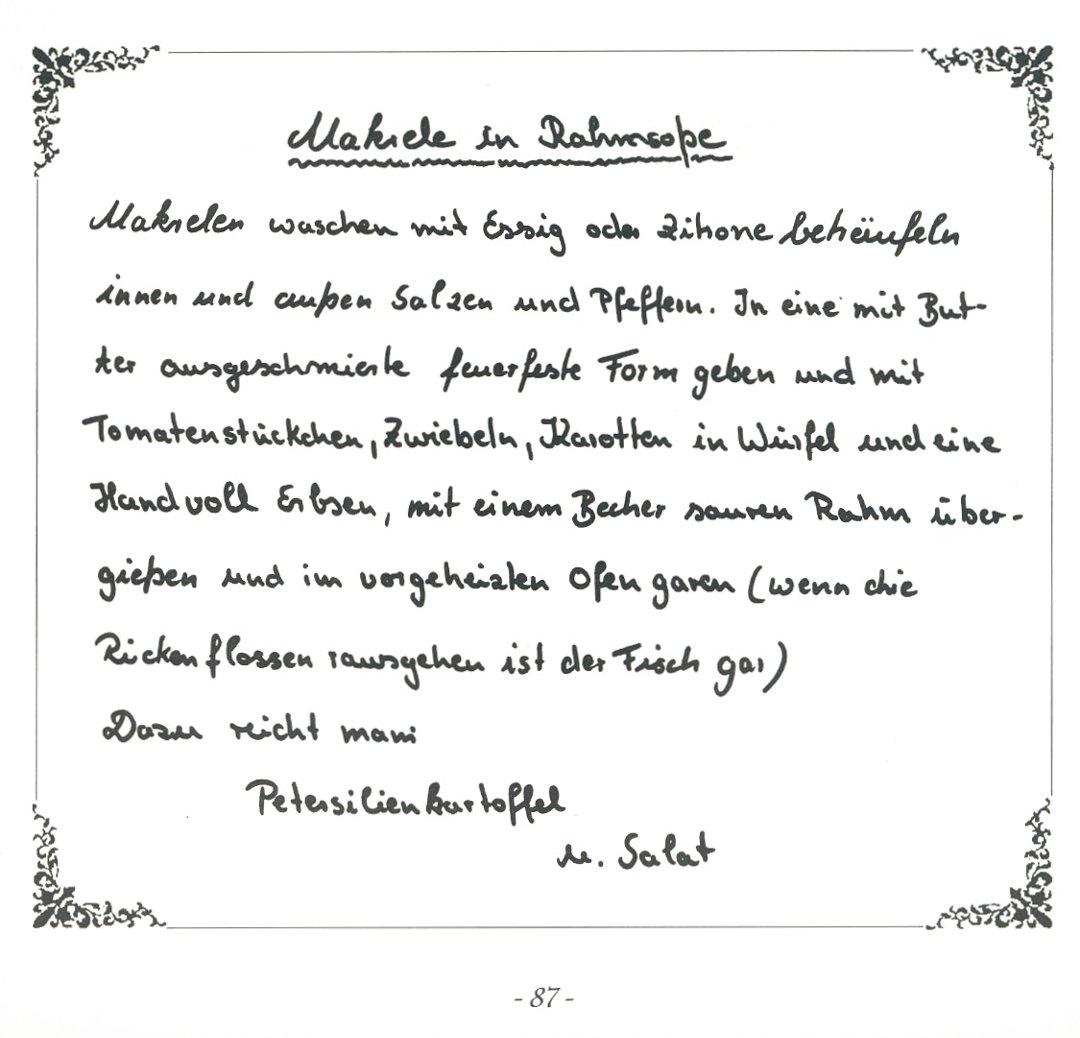 Makrele in Rahmsoße
Makrelen waschen mit Essig oder Zitrone beträufeln
innen und außen Salzen und Pfeffern. In eine mit But-
ter ausgeschmierte feuerfeste Form geben und mit
Tomatenstückchen, Zwiebeln, Karotten in Würfel und eine
Handvoll Erbsen, mit einem Becher sauren Rahm über-
gießen und im vorgeheizten Ofen garen (wenn die
Rückenflossen rausgehen ist der Fisch gar)
Dazu reicht man:
Petersilienkartoffel
u. Salat
- 87 -